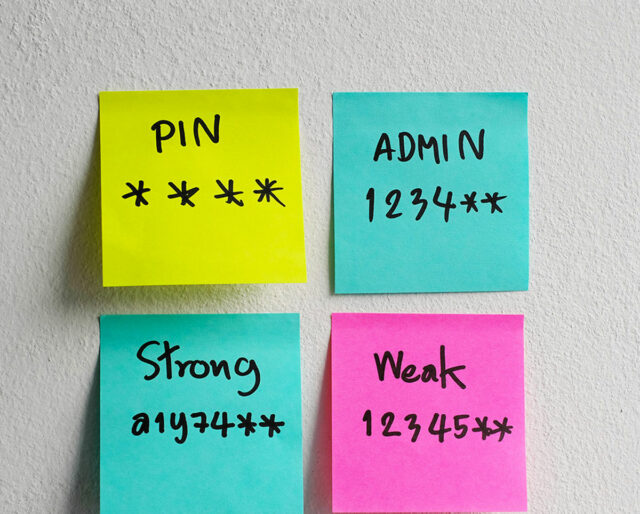 PIN
* * * *
ADMIN
1234**
Strong
a1y74**
Weak
12345**